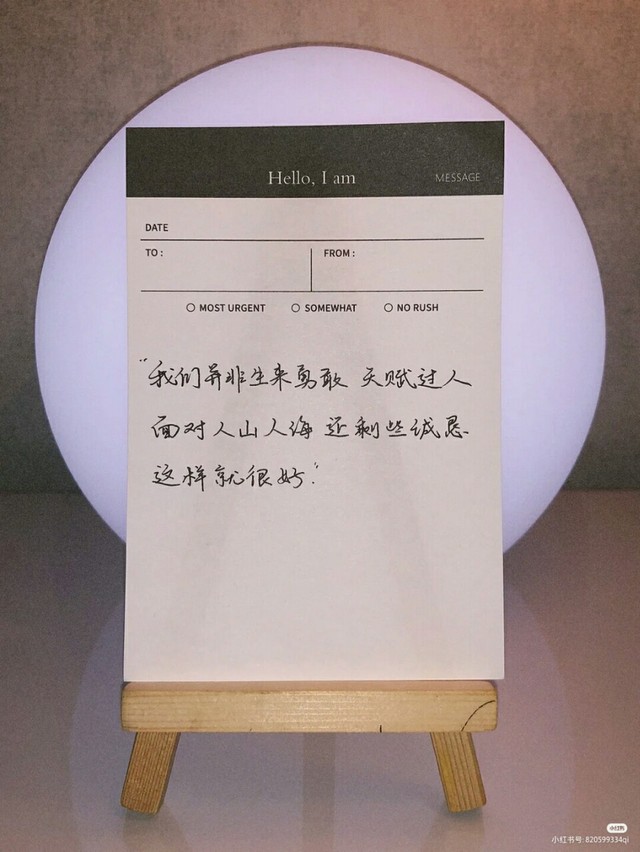 Hello, I am
MESSAGE
DATE
TO :
FROM :
MOST URGENT
SOMEWHAT
NO RUSH
“我们并非生来勇敢 天赋过人
面对人山人海 还剩些诚恳
这样就很好”
小红书
小红书号: 820599334qi